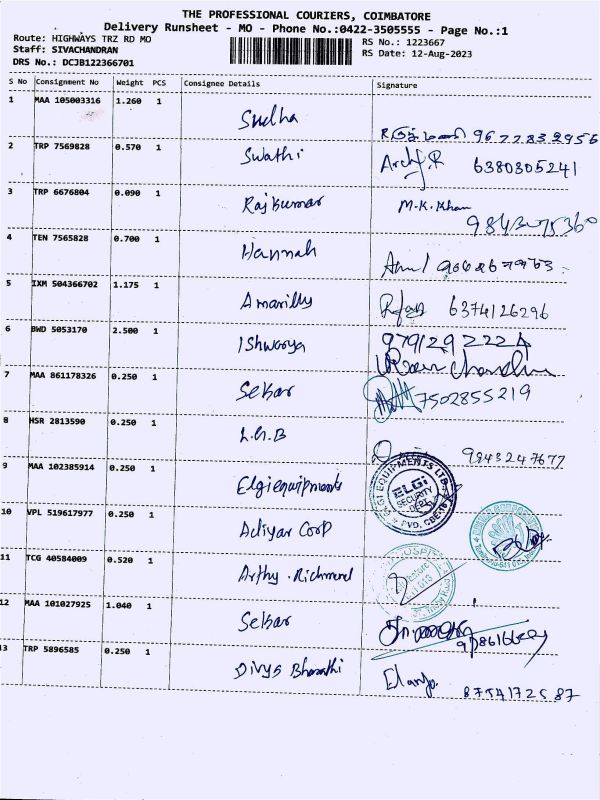 THE PROFESSIONAL COURIERS, COIMBATORE
Delivery Runsheet - MO - Phone No.:0422-3505555 - Page No.:1
Route: HIGHWAYS TRZ RD MO
Staff: SIVACHANDRAN
DRS No.: DCJB122366701
RS No.: 1223667
RS Date: 12-Aug-2023
S No Consignment No Weight PCS Consignee Details Signature
1 MAA 105003316 1.260 1 Sudha 9677832956
2 TRP 7569828 0.570 1 Swathi 6380305241
3 TRP 6676804 0.090 1 Rajkumar M.K.Khan
9843075360
4 TEN 7565828 0.700 1 Hannah
5 IXM 504366702 1.175 1 Amarilly 6374126296
6 BWD 5053170 2.500 1 Ishwarya 9791292224
7 MAA 861178326 0.250 1 Sekar 7502855219
8 HSR 2813590 0.250 1 L.G.B 9843247677
9 MAA 102385914 0.250 1 Elgiequipments ELGI EQUIPMENTS LTD ELGI SECURITY DEPT.
10 VPL 519617977 0.250 1 Adiyar Corp
11 TCG 40584009 0.520 1 Arthy.Richmend HOSPITAL
12 MAA 101027925 1.040 1 Sekar
13 TRP 5896585 0.250 1 Divya Bharathi 8754172587